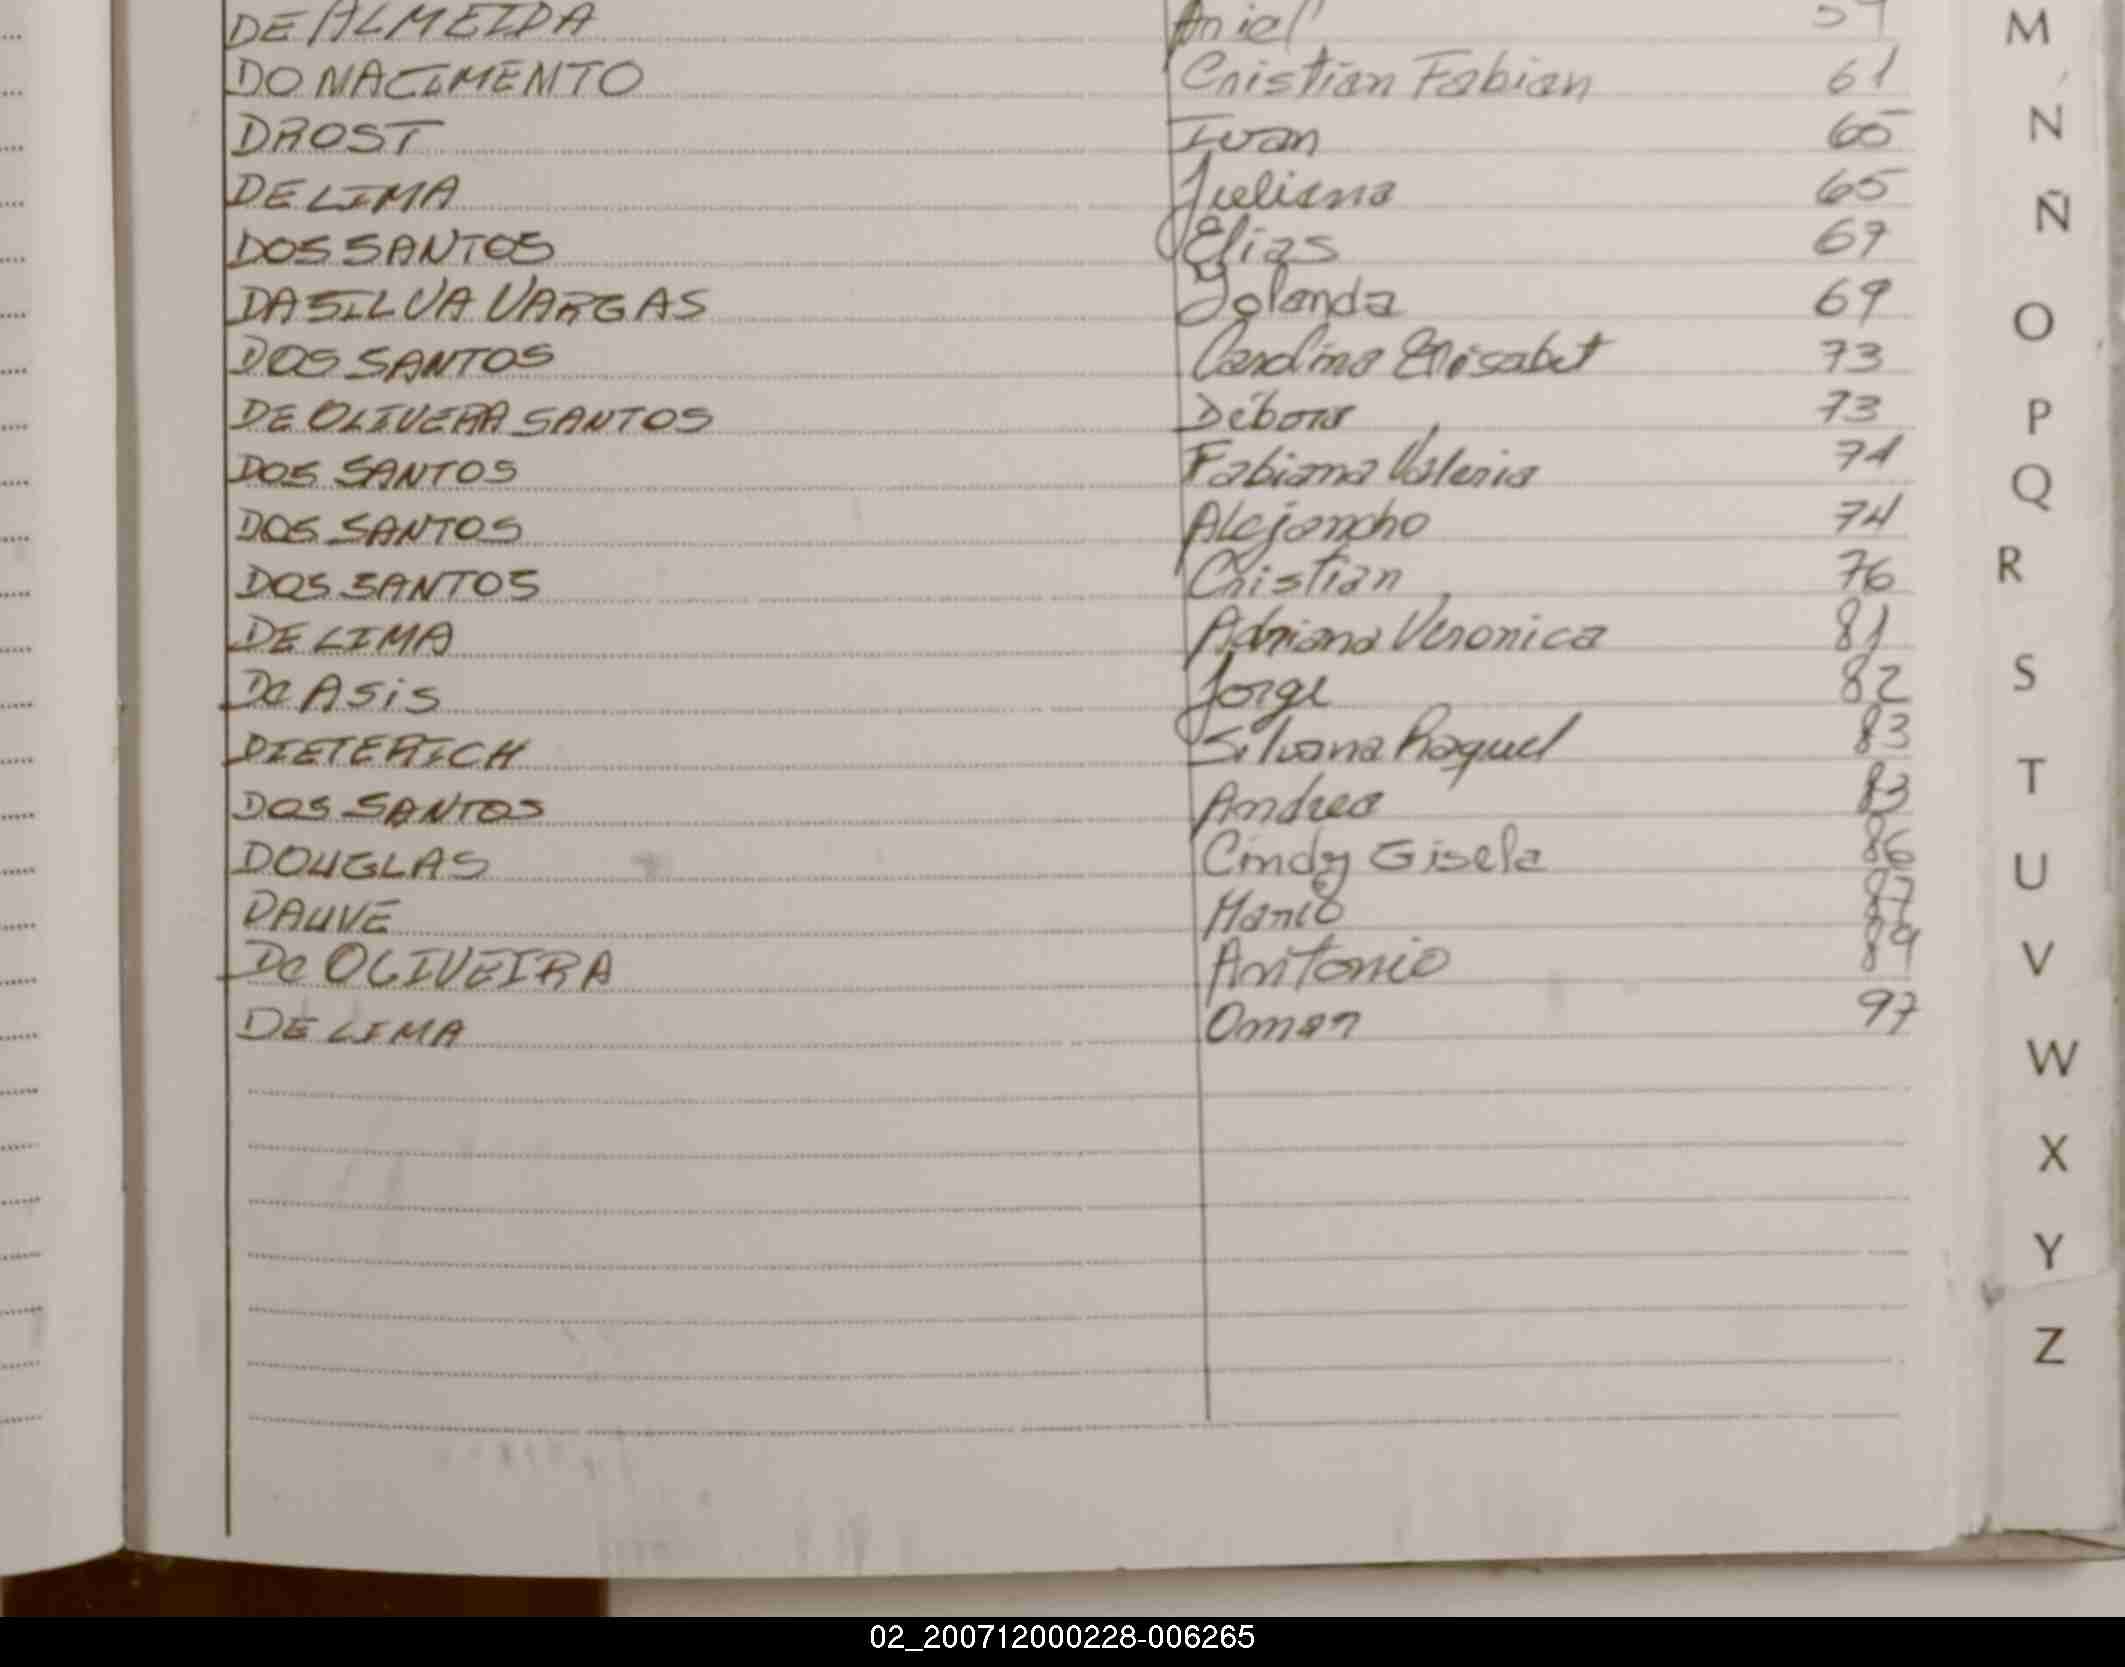 DE ALMEIDA Ariel 59
DO NACIMENTO Cristian Fabian 61
DROST Ivan 65
DE LIMA Juliana 65
DOS SANTOS Elias 69
DA SILVA VARGAS Yolanda 69
DOS SANTOS Carolina Elisabet 73
DE OLIVEIRA SANTOS Débora 73
DOS SANTOS Fabiana Valeria 74
DOS SANTOS Alejandro 74
DOS SANTOS Cristian 76
DE LIMA Adriana Veronica 81
De Asis Jorge 82
DIETERICH Silvana Raquel 83
DOS SANTOS Andrea 83
DOUGLAS Cindy Gisela 86
DAUVE Mario 87
De OLIVEIRA Antonio 89
DE LIMA Omar 97
M
N
Ñ
O
P
Q
R
S
T
U
V
W
X
Y
Z
02_200712000228-006265